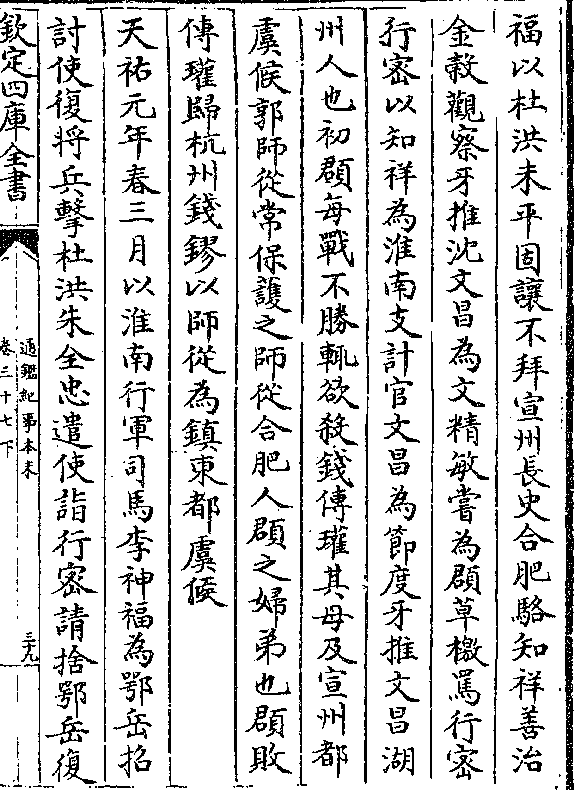 福以杜洪未平固讓不拜宣州長史合肥駱知祥善治
金穀觀察牙推沈文昌為文精敏嘗為頵草檄罵行密
行密以知祥為淮南支計官文昌為節度牙推文昌湖
州人也初頵每戰不勝輒欲殺錢傳瓘其母及宣州都
虞候郭師從常保護之師從合肥人頵之婦弟也頵敗
傳瓘歸杭州錢鏐以師從為鎮東都虞候
天祐元年春三月以淮南行軍司馬李神福為鄂岳招
討使復將兵擊杜洪朱全忠遣使詣行密請捨鄂岳復
欽定四庫全書
通鑑紀事本末
卷三十七下
三九